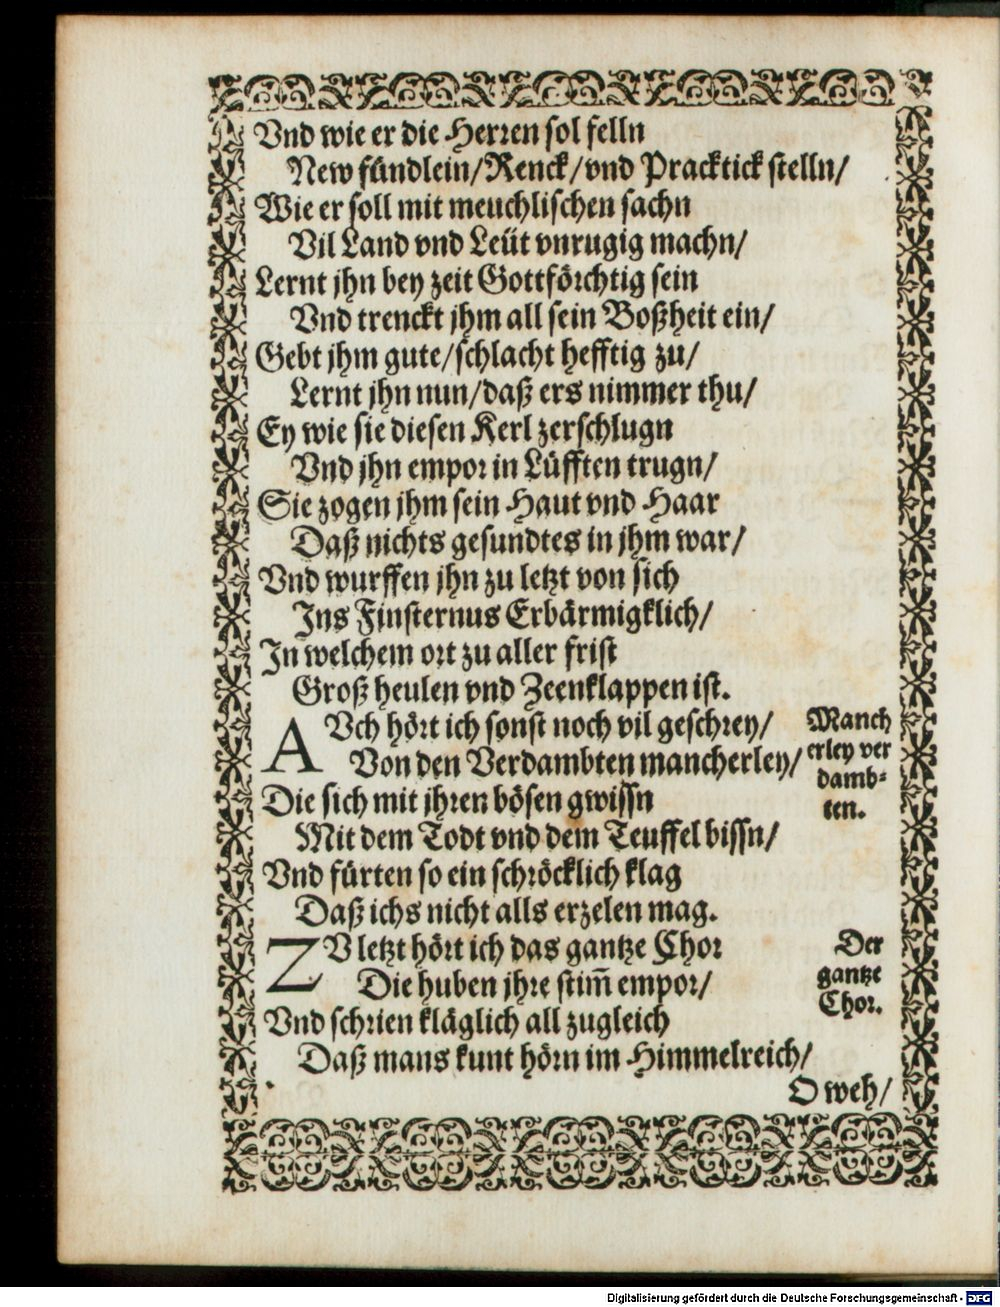 Vnd wie er die Herren sol felln
New fündlein/Renck/vnd Pracktick stelln/
Wie er soll mit meuchlischen sachn
Vil Land vnd Leüt vnrugig machn/
Lernt jhn bey zeit Gottförchtig sein
Vnd trenckt jhm all sein Boßheit ein/
Gebt jhm gute/schlacht hefftig zu/
Lernt jhn nun/daß ers nimmer thu/
Ey wie sie diesen Kerl zerschlugn
Vnd jhn empor in Lüfften trugn/
Sie zogen jhm sein Haut vnd Haar
Daß nichts gesundtes in jhm war/
Vnd wurffen jhn zu letzt von sich
Ins Finsternus Erbärmigklich/
In welchem ort zu aller frist
Groß heulen vnd Zeenklappen ist.
AVch hört ich sonst noch vil geschrey/
Von den Verdambten mancherley/
Manch
erley ver
damb-
ten.
Die sich mit jhren bösen gwissn
Mit dem Todt vnd dem Teuffel bissn/
Vnd fürten so ein schröcklich klag
Daß ichs nicht alls erzelen mag.
ZV letzt hört ich das gantze Chor
Die huben jhre stim̄ empor/
Der
gantze
Chor.
Vnd schrien kläglich all zugleich
Daß mans kunt hörn im Himmelreich/
O weh/
Digitalisierung gefördert durch die Deutsche Forschungsgemeinschaft - DFG